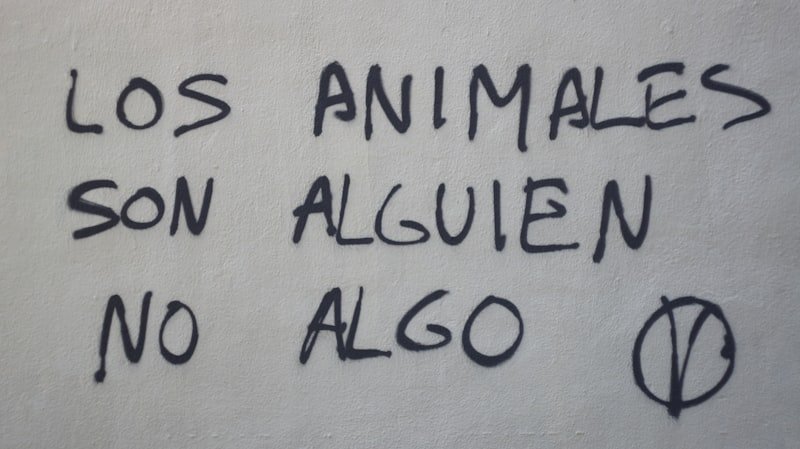 LOS ANIMALES
SON ALGUIEN
NO ALGO V